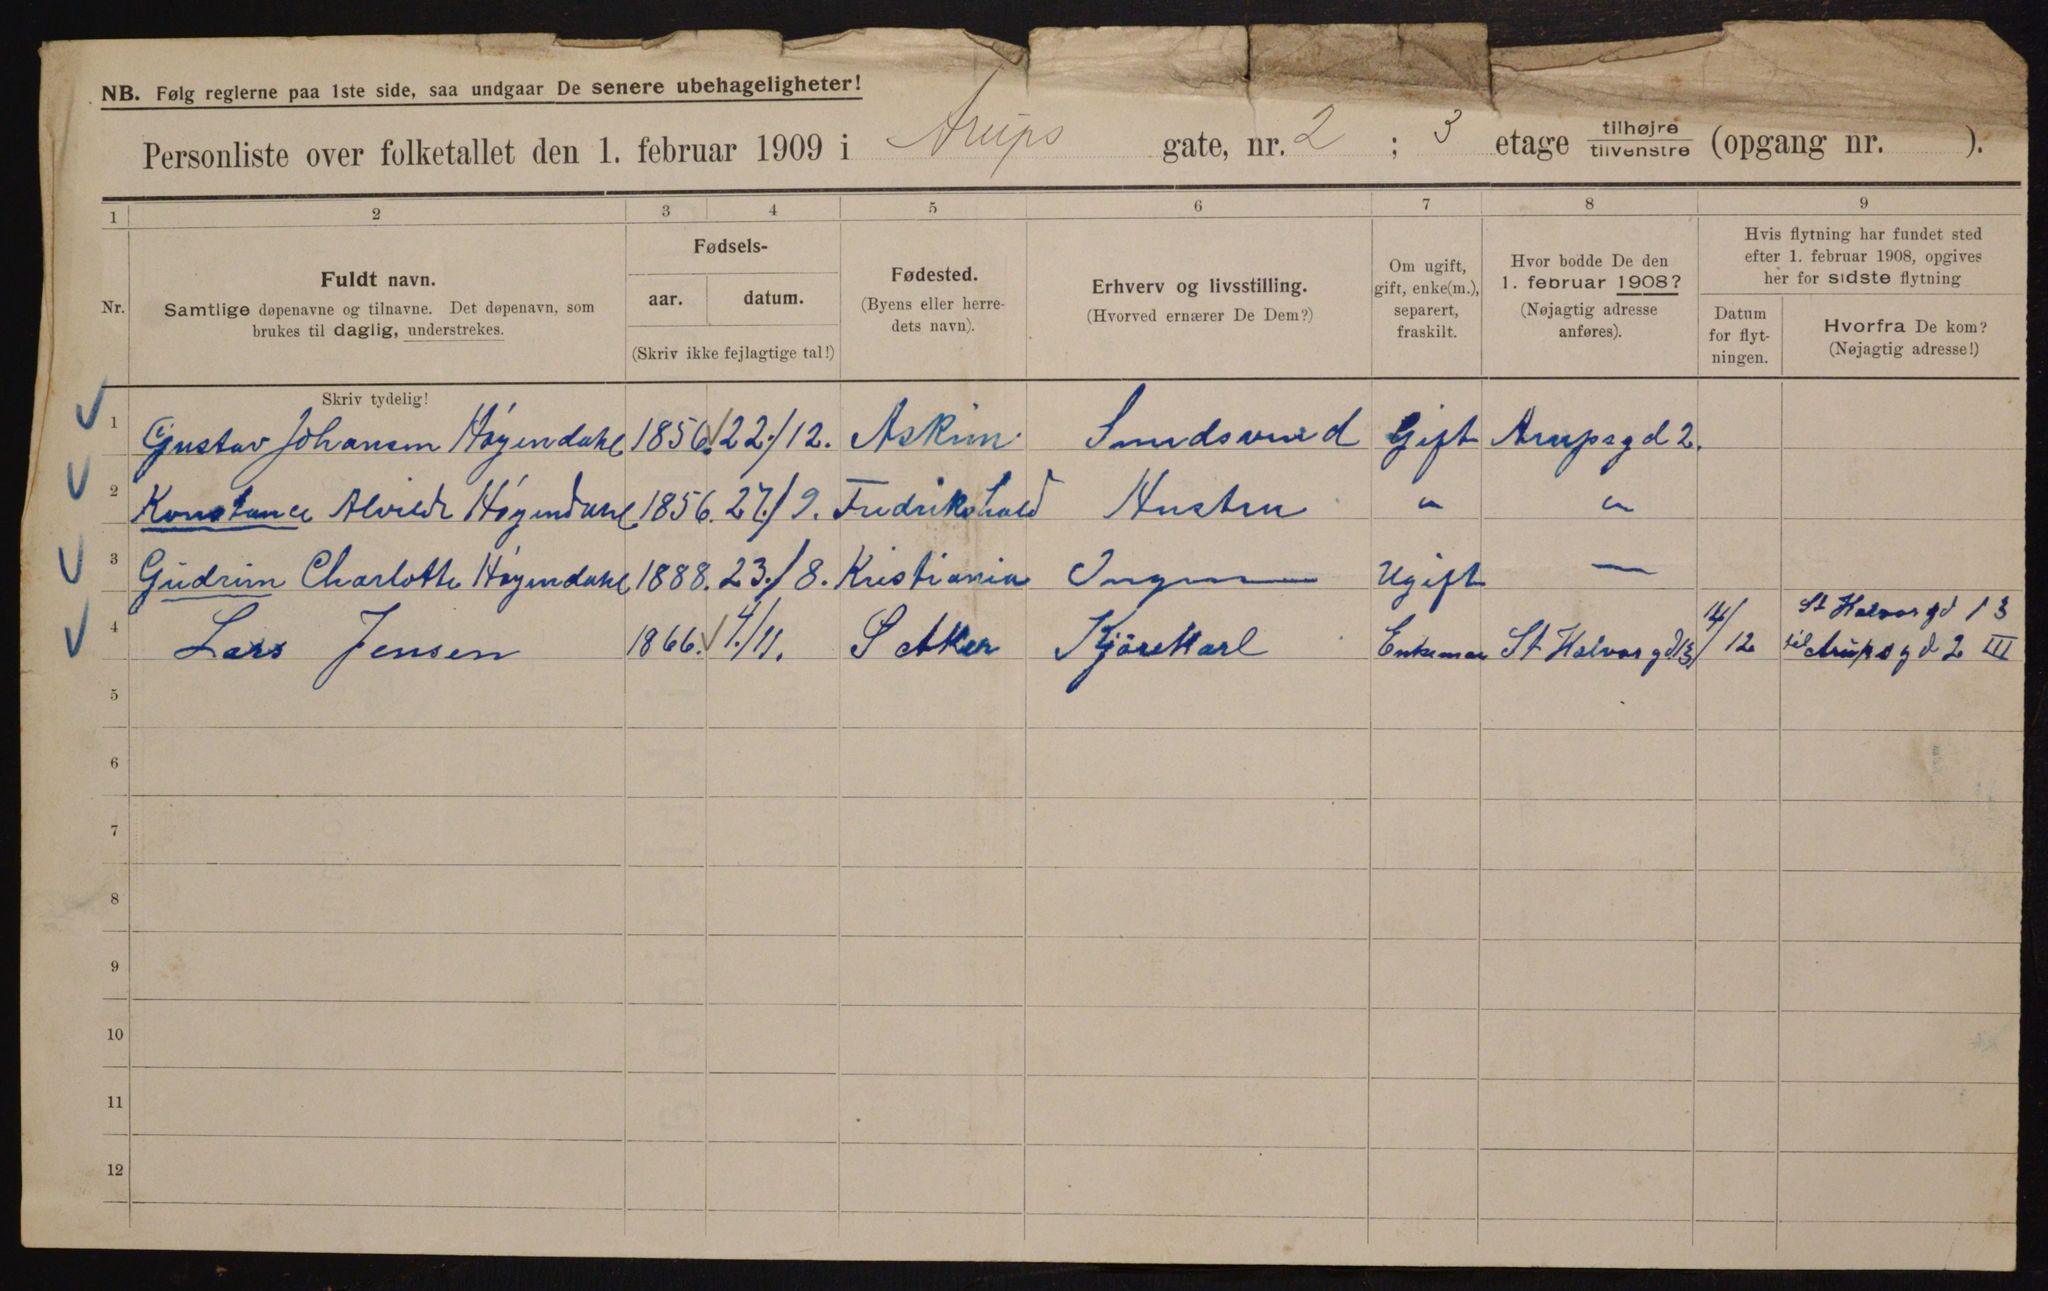 NB. Følg reglerne paa 1ste side, saa undgaar De senere ubehageligheter!
Personliste over folketallet den 1. februar 1909 i Arups gate, nr. 2 ; 3 etage tilhøjre tilvenstre (opgang nr. ).
1 2 3 4 5 6 7 8 9
Nr.
Fuldt navn.
Samtlige døpenavne og tilnavne. Det døpenavn, som
brukes til daglig, understrekes.
Fødsels-
aar. datum.
(Skriv ikke fejlagtige tal!)
Fødested.
(Byens eller herre-
dets navn).
Erhverv og livsstilling.
(Hvorved ernærer De Dem?)
Om ugift,
gift, enke(m.),
separert,
fraskilt.
Hvor bodde De den
1. februar 1908?
(Nøjagtig adresse
anføres).
Hvis flytning har fundet sted
efter 1. februar 1908, opgives
her for sidste flytning
Datum
for flyt-
ningen.
Hvorfra De kom?
(Nøjagtig adresse!)
Skriv tydelig!
1 Gustav Johansen Høgendahl 1856. 22./12. Askim Gift Arupsgd 2.
2 Konstance Alvilde Høgendahl 1856. 27./9. Fredrikshald Hustru " "
3 Gudrun Charlotte Høgendahl 1888. 23./8. Kristiania Ingen Ugift —
4 Lars Jensen 1866. 4./11. Kjørekarl Enkeman St Halvorgd 13 4/12 St Halvorgd 13
til Arupsgd 2 III
5
6
7
8
9
10
11
12